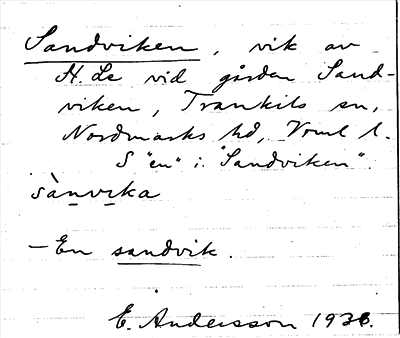 Sandviken, vik av
H. Le vid gården Sand-
viken, Trankils sn,
Nordmarks hd, Vrml l.
S "en" i "Sandviken".
sànvika
– En sandvik.
E. Andersson 1936.